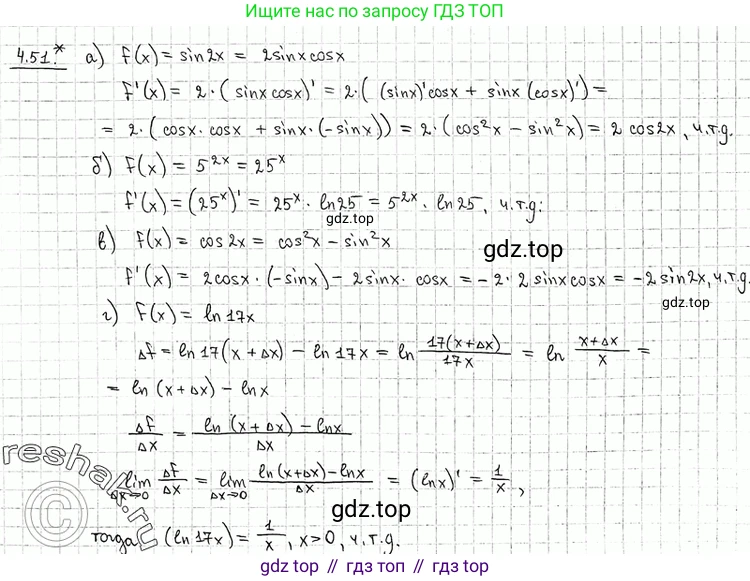 Пишите нам по запросу ГДЗ ТОП
4.51.* а) f(x) = sin2x = 2sinxcosx
f'(x) = 2·(sinxcosx)' = 2·((sinx)'cosx + sinx(cosx)') =
= 2·(cosx·cosx + sinx·(-sinx)) = 2·(cos²x - sin²x) = 2cos2x, ч.т.д.
б) f(x) = 5^{2x} = 25^x
f'(x) = (25^x)' = 25^x · ln25 = 5^{2x} · ln25, ч.т.д.
gdz.top
в) f(x) = cos2x = cos²x - sin²x
gdz.top
f'(x) = 2cosx·(-sinx) - 2sinx·cosx = -2·2sinxcosx = -2sin2x, ч.т.д.
г) f(x) = ln17x
Δf = ln17(x+Δx) - ln17x = ln \frac{17(x+Δx)}{17x} = ln \frac{x+Δx}{x} =
gdz.top
= ln(x+Δx) - lnx
\frac{Δf}{Δx} = \frac{ln(x+Δx) - lnx}{Δx}
\lim_{Δx→0} \frac{Δf}{Δx} = \lim_{Δx→0} \frac{ln(x+Δx) - lnx}{Δx} = (lnx)' = \frac{1}{x},
gdz.top
тогда (ln17x) = \frac{1}{x}, x>0, ч.т.д.
©reshak.ru
gdz.top // гдз.топ // gdz.top // гдз.топ